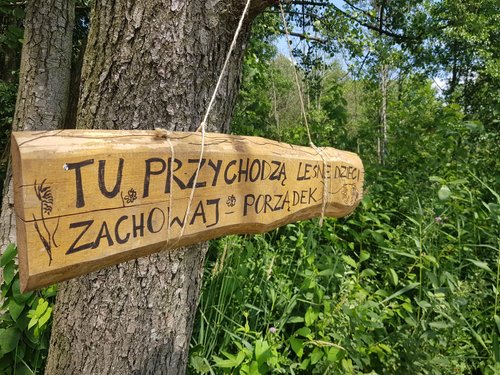 TU PRZYCHODZĄ LEŚNE DZIECI
ZACHOWAJ - PORZĄDEK